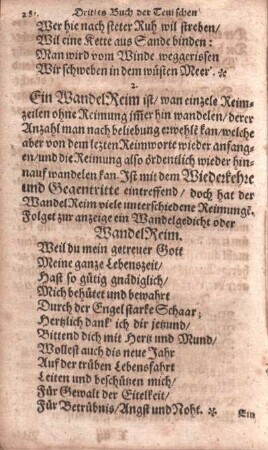 Drittes Buch der Teutschen
Wer hie nach steter Ruh wil streben/
Wil eine Kette aus Sande binden:
Man wird vom Winde weggerissen
Wir schweben in dem wüsten Meer'. *
2.
Ein WandelReim ist/ wan einzele Reim-
zeilen ohne Reimung im̃er hin wandelen/ derer
Anzahl man nach beliebung erwehlt kan/ welche
aber von dem letzten Reimworte wieder anfan-
gen/ und die Reimung also ördentlich wieder hin-
auf wandelen kan. Ist mit dem Wiederkehre
und Gegentritte eintreffend/ doch hat der
WandelReim viele unterschiedene Reimungẽ.
Folget zur anzeige ein Wandelgedicht oder
WandelReim.
Weil du mein getreuer Gott
Meine ganze Lebenszeit/
Hast so gütig gnädiglich/
Mich behütet und bewahrt
Durch der Engel starke Schaar;
Hertzlich dank' ich dir jetzund/
Bittend dich mit Hertz und Mund/
Wollest auch dis neue Jahr
Auf der trüben Lebensfahrt
Leiten und beschützen mich/
Für Gewalt der Eitelkeit/
Für Betrübnis/ Angst und Noht. *
Ein